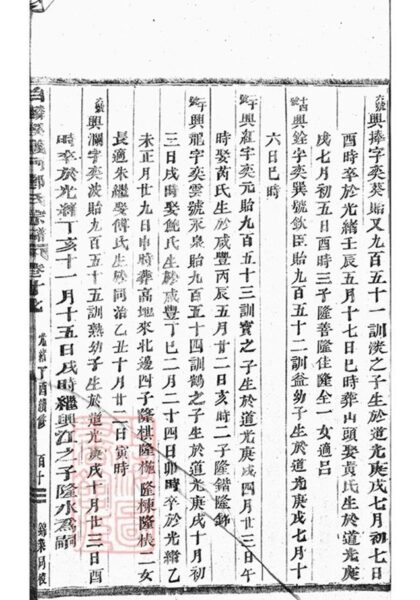 六號興捧字奕葵貽又九百五十一訓淡之子生於道光庚戌七月初七日
酉時卒於光緒壬辰五月十七日巳時葬山頭娶黃氏生於道光庚
戌七月初五日酉時三子隆善隆佳隆全一女適呂
十四號興銓字奕巽號欽臣貽九百五十二訓益幼子生於道光庚戌七月十
六日巳時
十號興紅字奕元貽九百五十三訓寶之子生於道光庚戌四月廿三日午
時娶芮氏生於咸豐丙辰五月廿二日亥時二子隆鍇隆鉓
十號興龍字奕雲號永泉貽九百五十四訓鶴之子生於道光庚戌十月初
三日戌時娶鮑氏生於咸豐丁巳二月二十四日卯時卒於光緒乙
未正月廿九日申時葬高地來北邊四子隆棋隆極隆棟隆樣二女
長適朱繼娶傅氏生於同治乙丑十月廿二日寅時
六號興瀾字奕波貽九百五十五訓熟幼子生於道光庚戌十月廿三日酉
時卒於光緒丁亥十一月十五日戌時繼興江之子隆水為嗣
氏宗譜 卷十九 光緒丁酉續修 百十